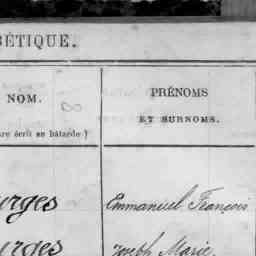 BÉTIQUE.
NOM.
PRÉNOMS
ET SURNOMS.
re écrit en bâtarde)
urges
Emmanuel François
urges
Joseph Marie